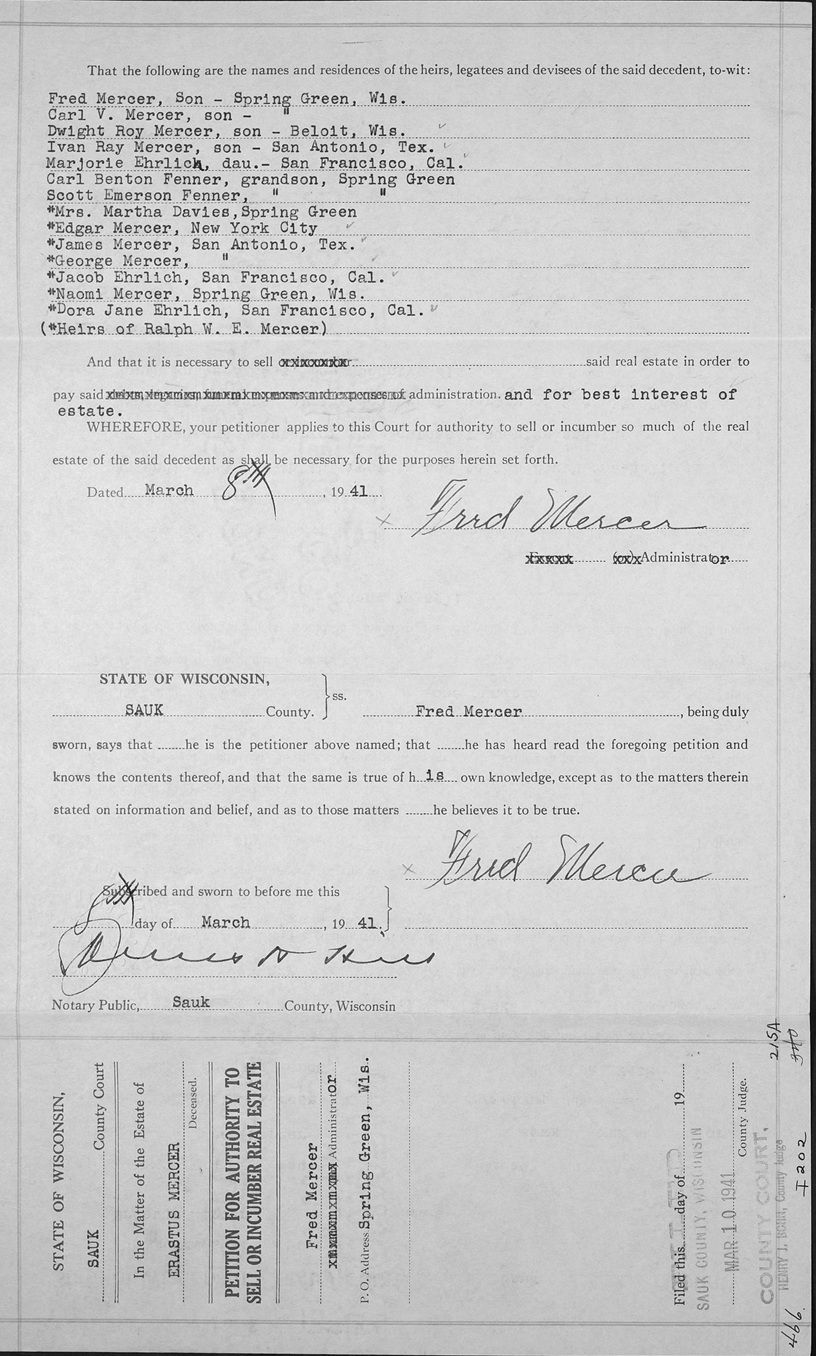 That the following are the names and residences of the heirs, legatees and devisees of the said decedent, to-wit:
Fred Mercer, Son - Spring Green, Wis.
Carl V. Mercer, son - "
Dwight Roy Mercer, son - Beloit, Wis.
Ivan Ray Mercer, son - San Antonio, Tex.
Marjorie Ehrlich, dau.- San Francisco, Cal.
Carl Benton Fenner, grandson, Spring Green
Scott Emerson Fenner, " "
*Mrs. Martha Davies, Spring Green
*Edgar Mercer, New York City
*James Mercer, San Antonio, Tex.
*George Mercer, "
*Jacob Ehrlich, San Francisco, Cal.
*Naomi Mercer, Spring Green, Wis.
*Dora Jane Ehrlich, San Francisco, Cal.
(*Heirs of Ralph W. E. Mercer)
And that it is necessary to sell said real estate in order to
pay said administration. and for best interest of
estate.
WHEREFORE, your petitioner applies to this Court for authority to sell or incumber so much of the real
estate of the said decedent as shall be necessary for the purposes herein set forth.
Dated March 8th, 1941
x Fred Mercer
Administrator
STATE OF WISCONSIN,
SAUK County. ss. Fred Mercer, being duly
sworn, says that he is the petitioner above named; that he has heard read the foregoing petition and
knows the contents thereof, and that the same is true of his own knowledge, except as to the matters therein
stated on information and belief, and as to those matters he believes it to be true.
x Fred Mercer
Subscribed and sworn to before me this
8th day of March, 1941.
Notary Public, Sauk County, Wisconsin
STATE OF WISCONSIN,
SAUK County Court
In the Matter of the Estate of
ERASTUS MERCER
Deceased.
PETITION FOR AUTHORITY TO
SELL OR INCUMBER REAL ESTATE
Fred Mercer
Administrator
P. O. Address Spring Green, Wis.
Filed this day of 19
SAUK COUNTY, WISCONSIN
MAR 10 1941
County Judge.
COUNTY COURT,
HENRY J. BOHN, County Judge
215A
340
I 202
466